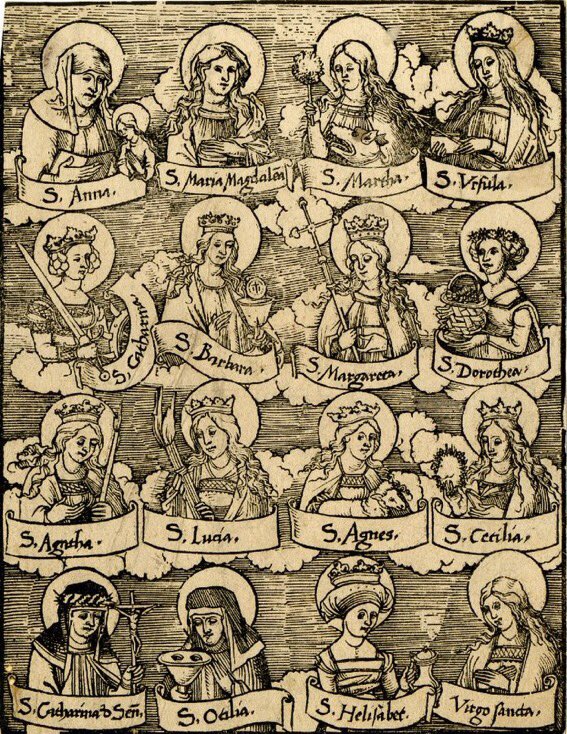 S. Anna.
S. Maria Magdalen
S. Martha.
S. Vrsula.
S. Catharina
S. Barbara.
S. Margareta.
S. Dorothea.
S. Agatha.
S. Lucia.
S. Agnes.
S. Cecilia.
S. Catharina d Señ.
S. Otilia.
S. Helisabet.
Virgo sancta.